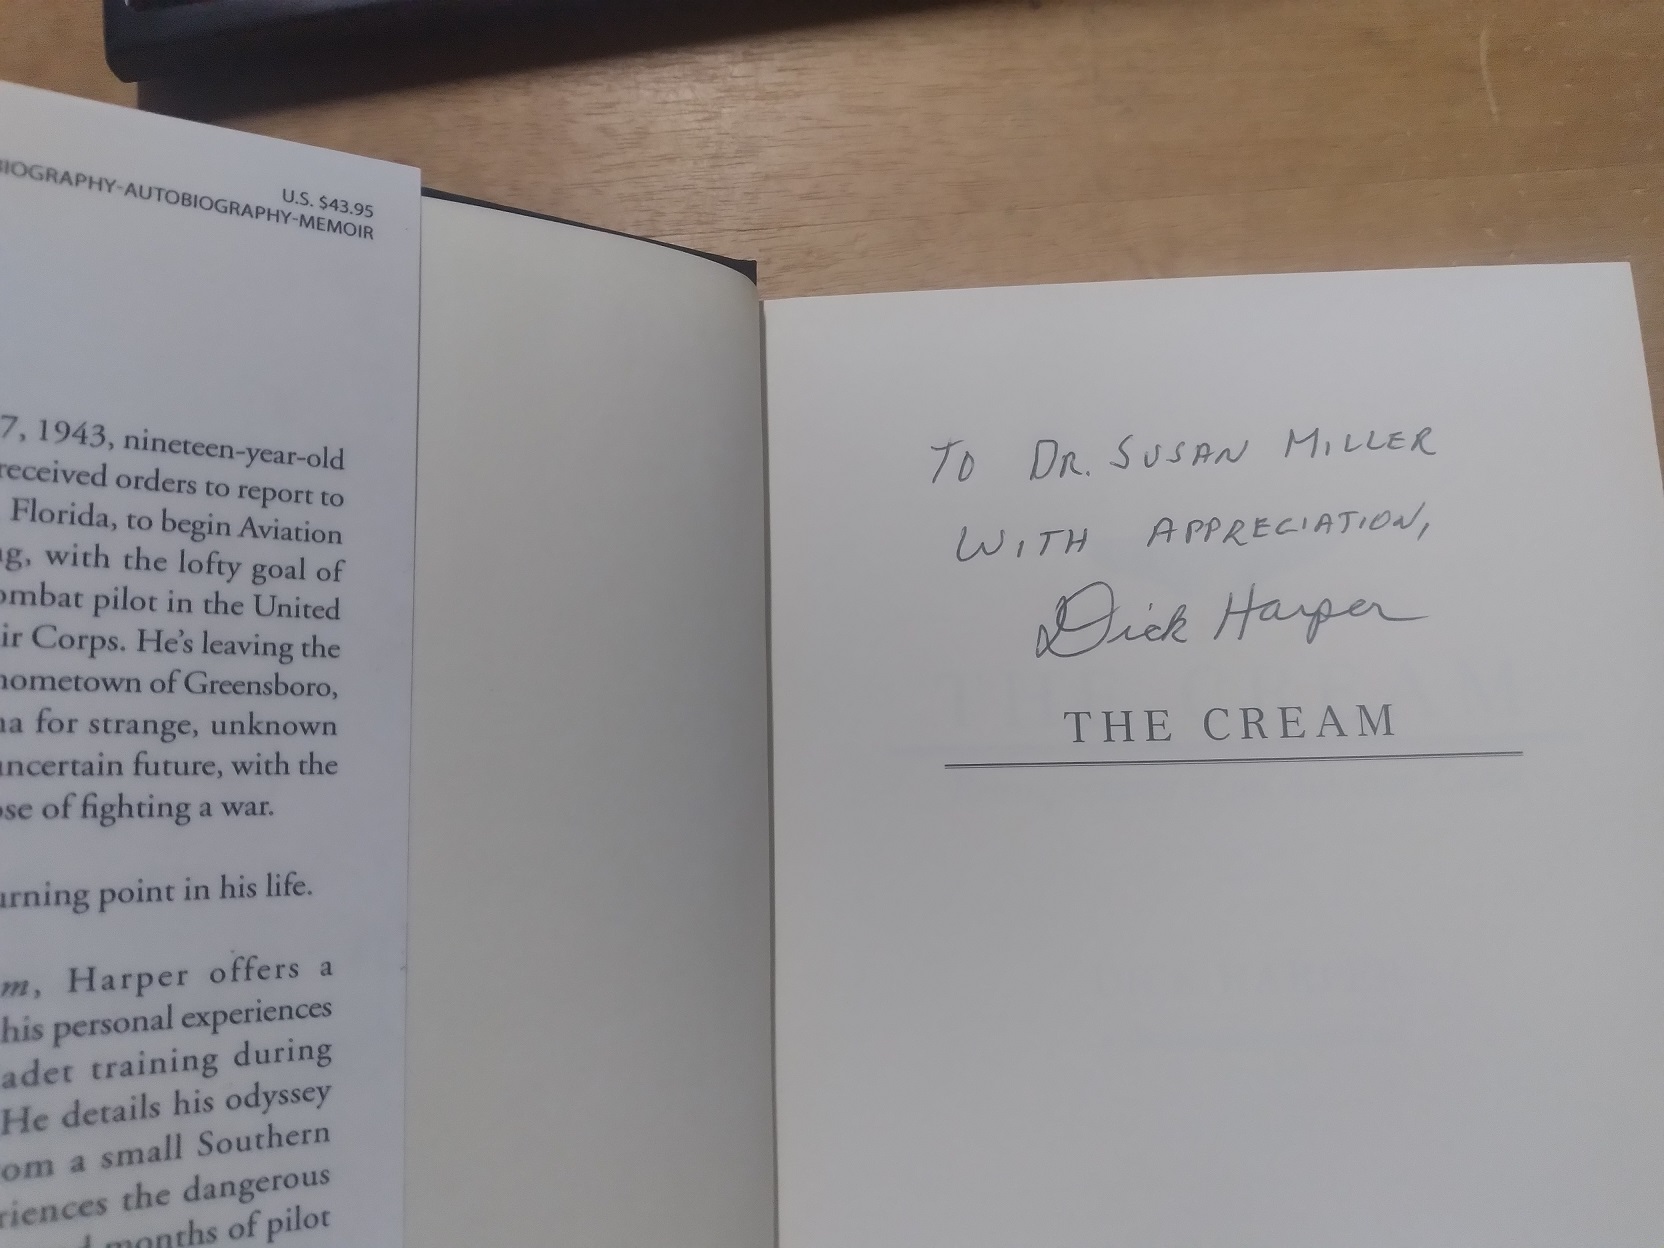 U.S. $43.95
BIOGRAPHY-AUTOBIOGRAPHY-MEMOIR
7, 1943, nineteen-year-old
received orders to report to
Florida, to begin Aviation
with the lofty goal of
pilot in the United
Corps. He's leaving the
hometown of Greensboro,
for strange, unknown
uncertain future, with the
of fighting a war.
point in his life.
Harper offers a
his personal experiences
training during
He details his odyssey
a small Southern
the dangerous
months of pilot
TO DR. SUSAN MILLER
WITH APPRECIATION,
Dick Harper
THE CREAM